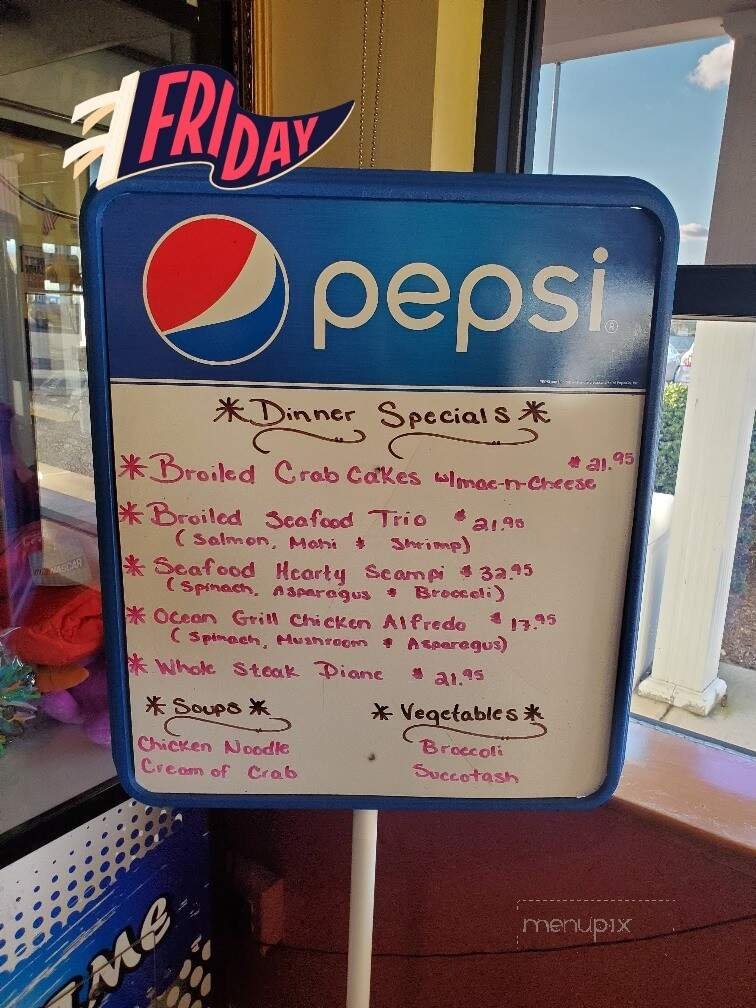 FRIDAY
pepsi
* Dinner Specials *
* Broiled Crab Cakes w/mac-n-Cheese $21.95
* Broiled Seafood Trio $21.95
(Salmon, Mahi & Shrimp)
* Seafood Hearty Scampi $32.95
(Spinach, Asparagus & Broccoli)
* Ocean Grill Chicken Alfredo $17.95
(Spinach, Mushroom & Asparagus)
* Whole Steak Diane $21.95
* Soups *
* Vegetables *
Chicken Noodle
Broccoli
Cream of Crab
Succotash
NASCAR
menupix